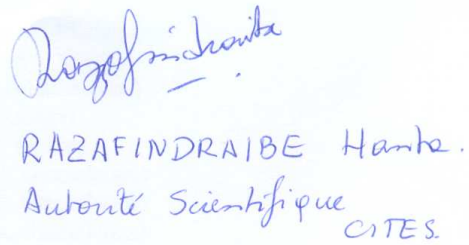 Razafindraibe
RAZAFINDRAIBE Hanta.
Autorité Scientifique
CITES.